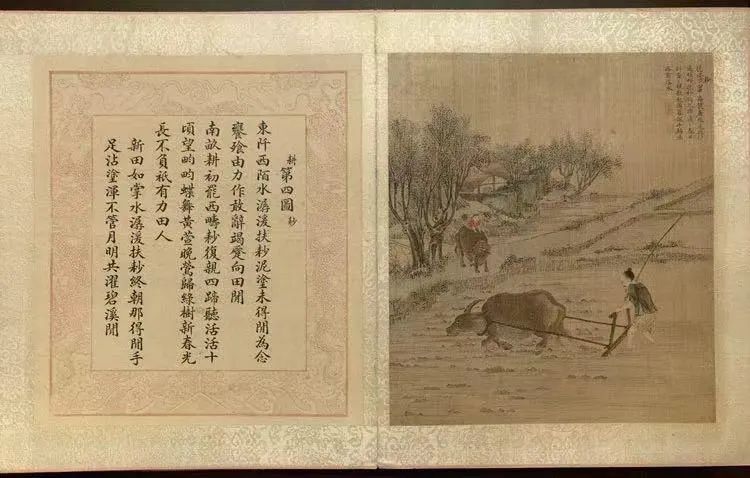 耕 第四圖 耖
東阡西陌水潺湲扶耖泥塗未得閒為念
饔飧由力作敢辭竭蹷向田閒
南畝耕初罷西疇耖復親四蹄聽活活十
頃望畇畇蝶舞黃萱晚鶯歸綠樹新春光
長不負祇有力田人
新田如掌水潺湲扶耖終朝那得閒手
足沾塗渾不管月明共濯碧溪閒
耖